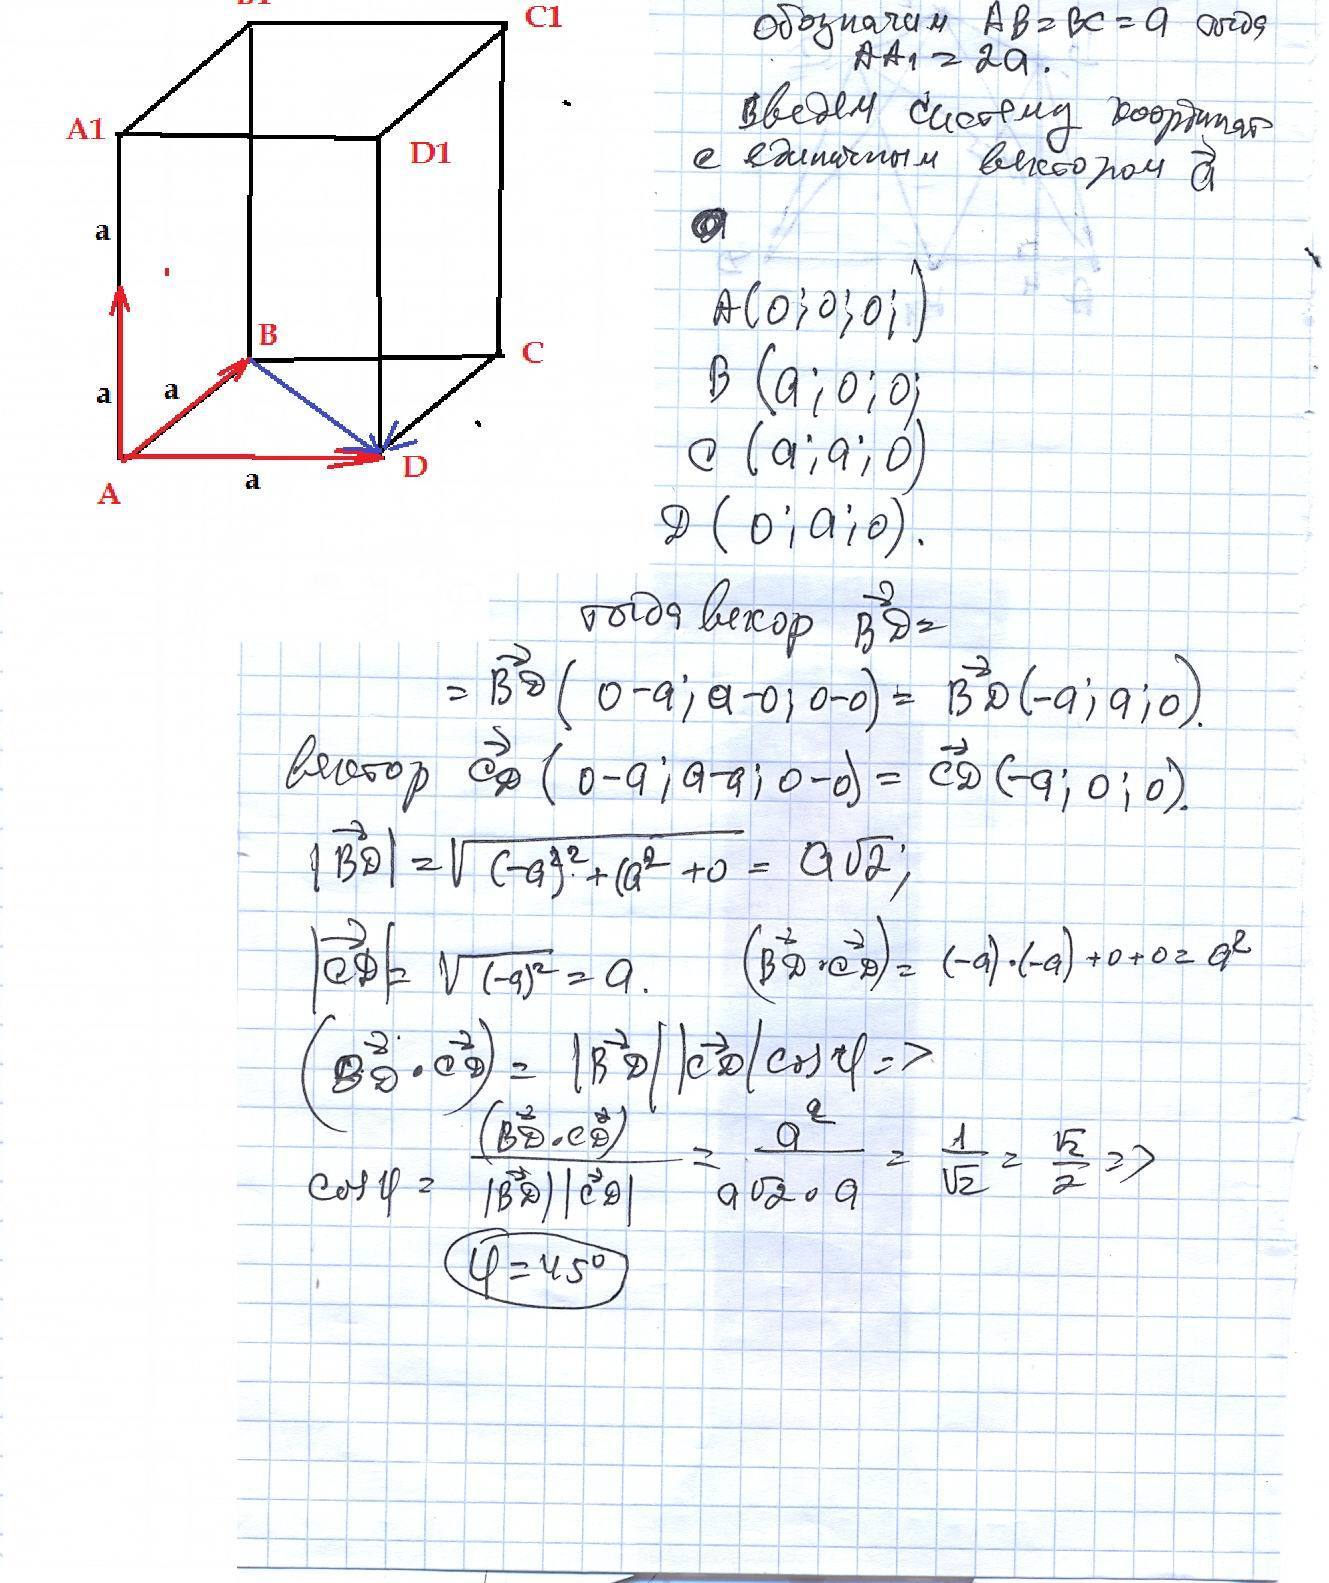 B1
C1
A1
D1
a
B
C
a
a
A
a
D
обозначим AB=BC=a тогда
AA₁=2a.
Введем систему координат
с единичным вектором a⃗
A(0;0;0;)
B(a;0;0;
C(a;a;0)
D(0;a;0).
тогда векор B⃗D=
=B⃗D(0-a;a-0;0-0)=B⃗D(-a;a;0).
вектор C⃗D(0-a;a-a;0-0)=C⃗D(-a;0;0).
|B⃗D|=√(-a)²+(a²+0=a√2;
|C⃗D|=√(-a)²=a. (B⃗D·C⃗D)=(-a)·(-a)+0+0=a²
(B⃗D·C⃗D)=|B⃗D||C⃗D|cosφ=>
cosφ=(B⃗D·C⃗D)/|B⃗D||C⃗D|=a²/a√2·a=1/√2=√2/2=>
φ=45°